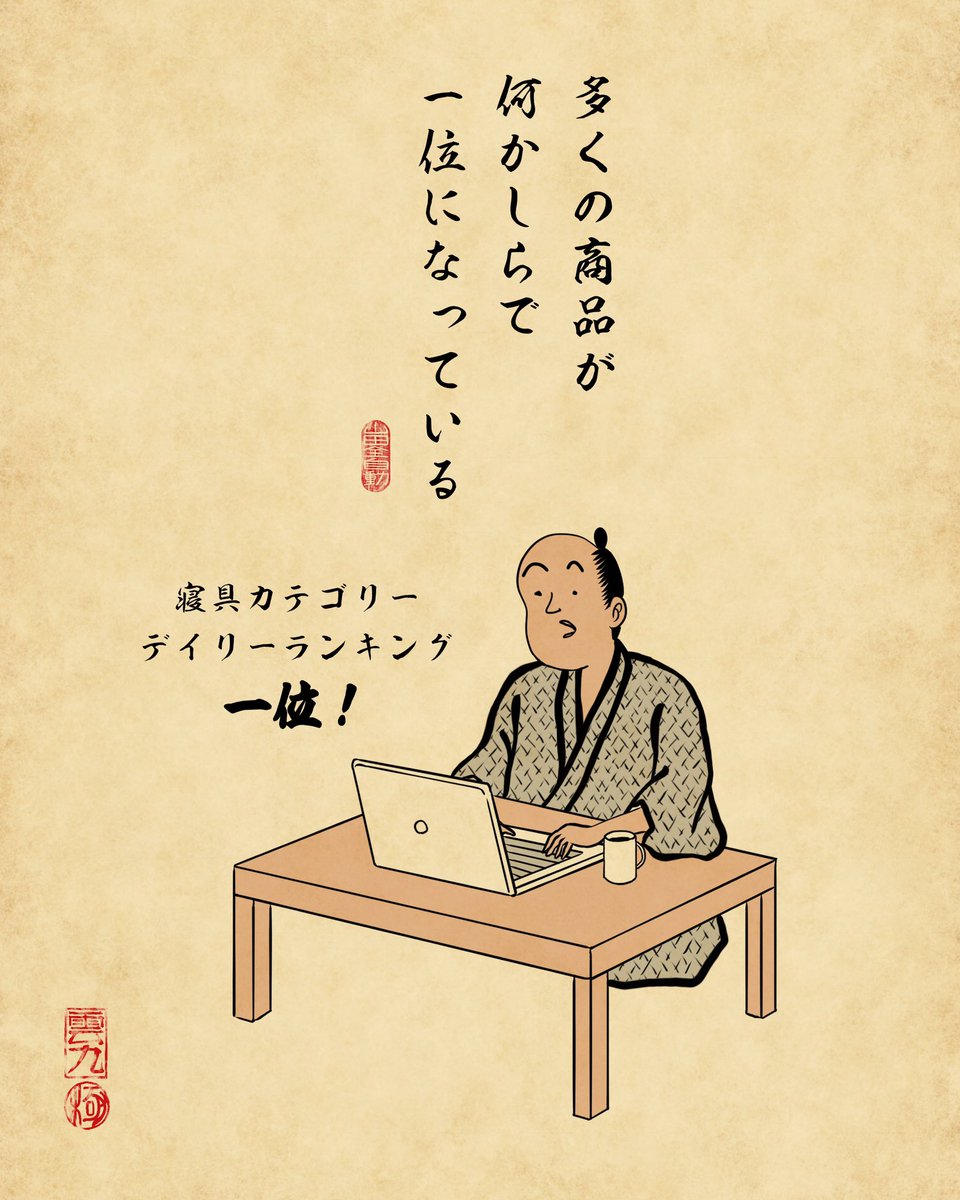 多くの商品が
何かしらで
一位になっている
寝具カテゴリー
デイリーランキング
一位！